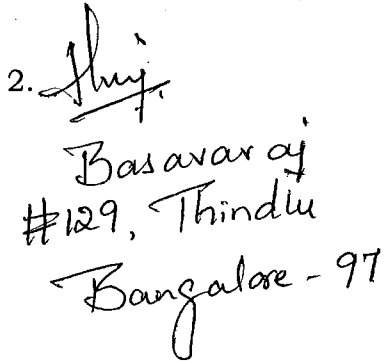 2.
Basavaraj
#129, Thindlu
Bangalore - 97